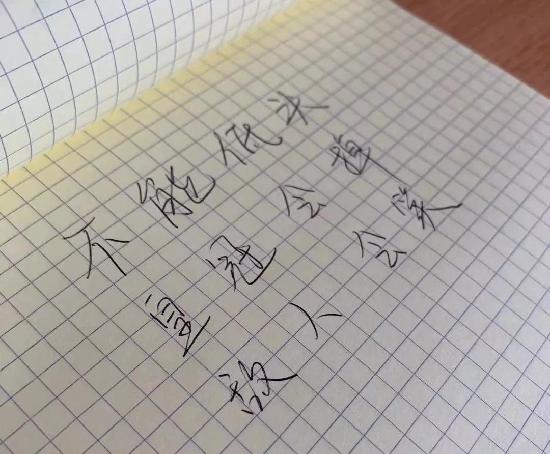 不能低头
皇冠会掉
敌人会笑